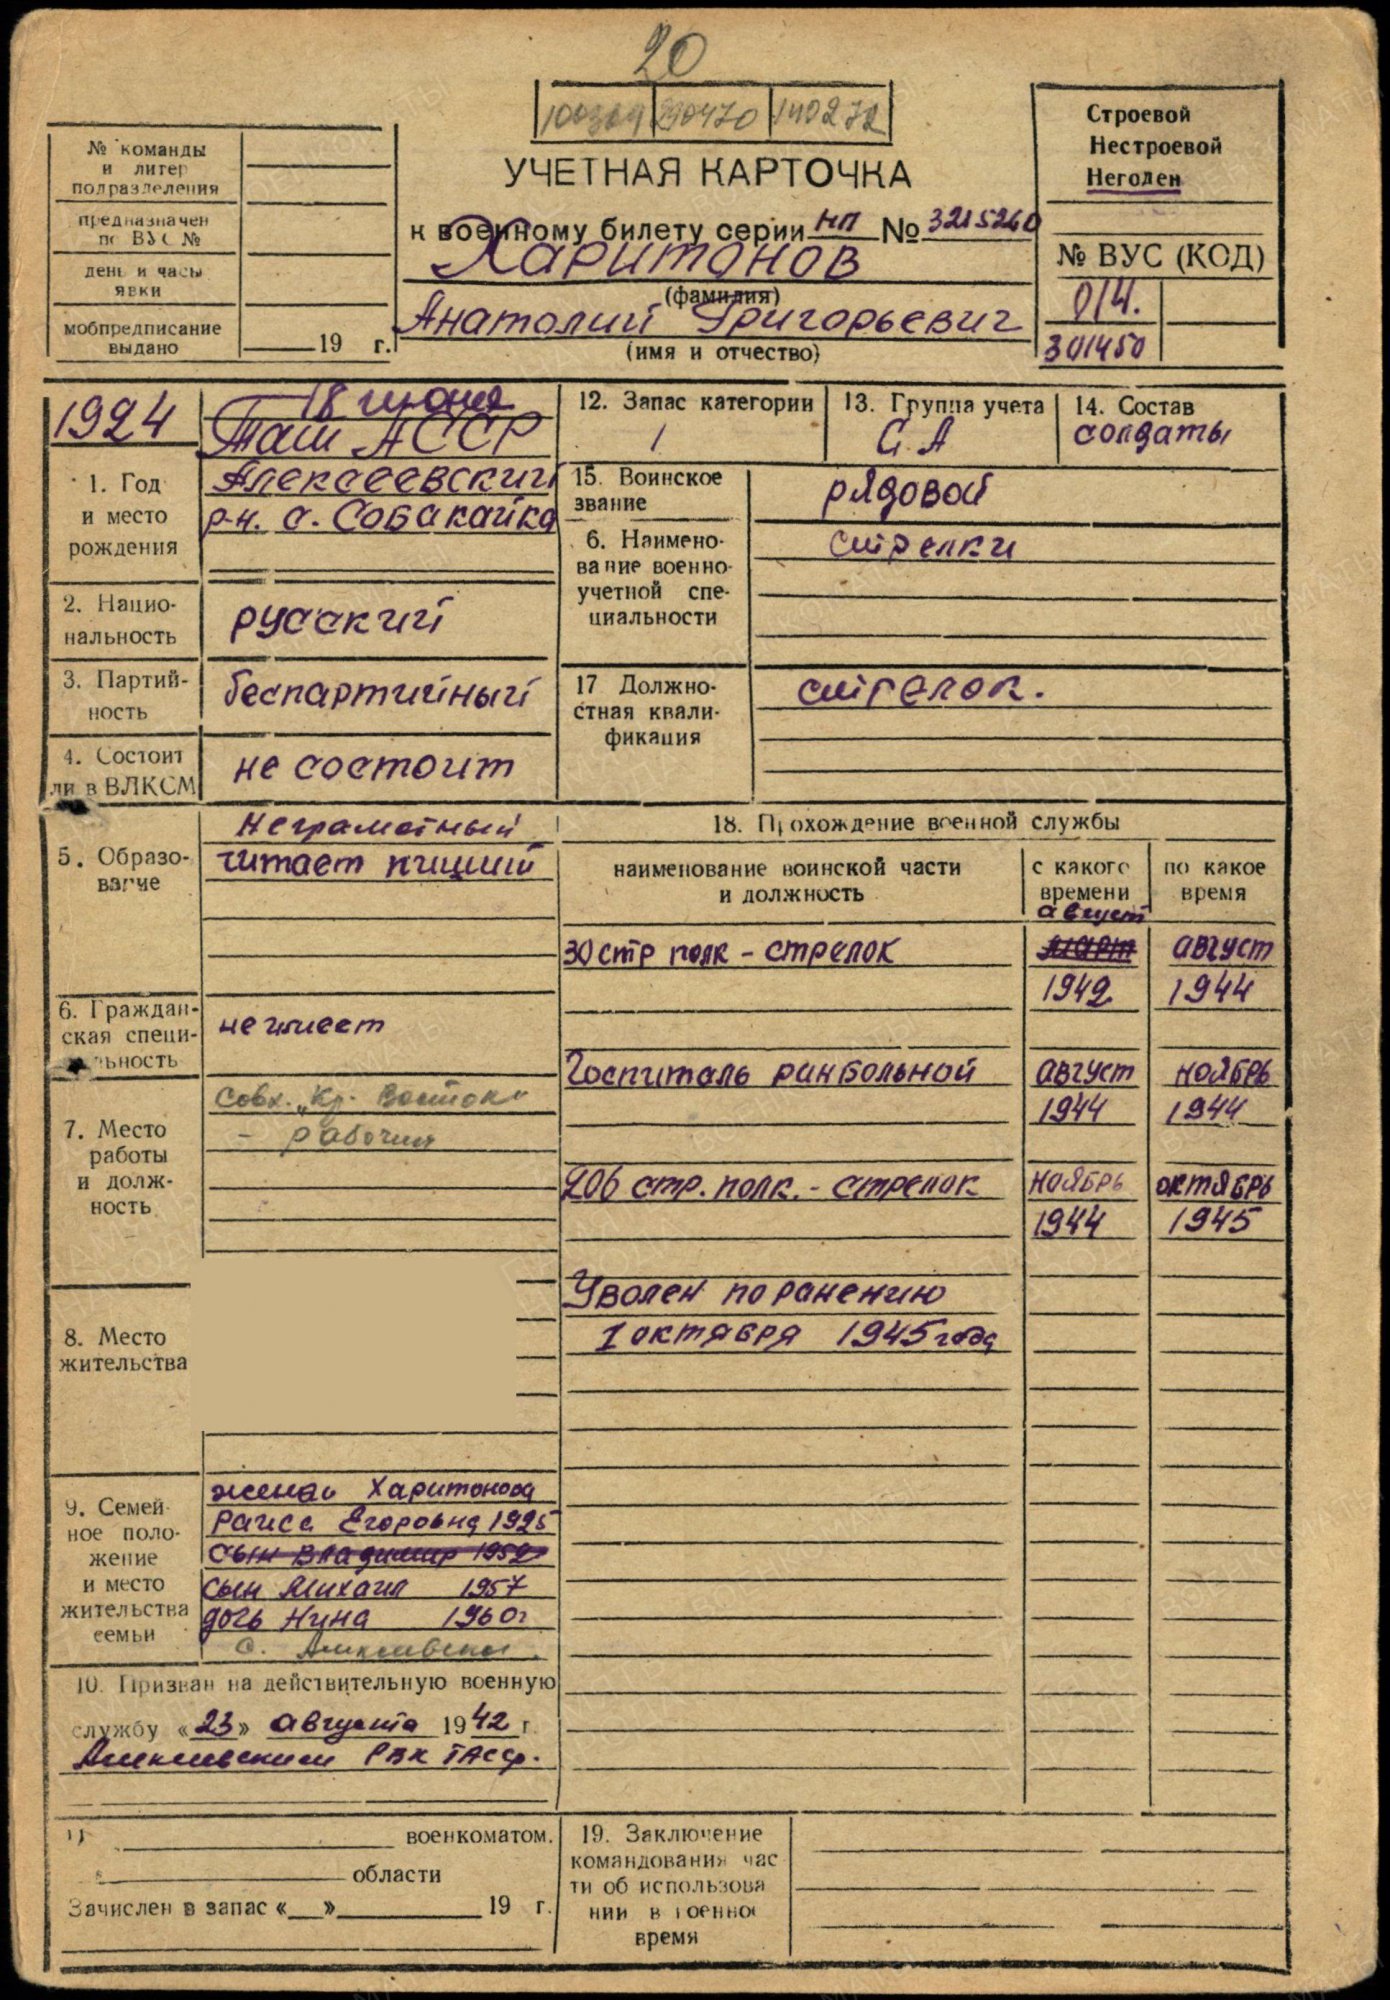 20
100369 290470 140272
№ команды
и литер
подразделения
предназначен
по ВУС №
день и часы
явки
мобпредписание
выдано
19 г.
УЧЕТНАЯ КАРТОЧКА
к военному билету серии НП № 3215260
Харитонов
(фамилия)
Анатолий Григорьевич
(имя и отчество)
Строевой
Нестроевой
Негоден
№ ВУС (КОД)
014.
301450
1924
18 июня
Таш АССР
Алексеевский
р-н. с. Собакайка
1. Год
и место
рождения
2. Нацио-
нальность
русский
3. Партий-
ность
беспартийный
4. Состоит
ли в ВЛКСМ
не состоит
5. Образо-
вание
Неграмотный
читает пищий
6. Граждан-
ская специ-
альность
не имеет
7. Место
работы
и долж-
ность
Совх. „Кр. Восток"
- рабочий
8. Место
жительства
9. Семей-
ное поло-
жение
и место
жительства
семьи
жена Харитонова
Раиса Егоровна 1925
сын Владимир 1952
сын Михаил 1957
дочь Нина 1960г
с. Алексеевское
10. Призван на действительную военную
службу «23» августа 1942 г.
Алексеевским РВК ТАССР.
11
военкоматом.
области
Зачислен в запас «__» 19 г.
12. Запас категории
1
13. Группа учета
С.А
14. Состав
солдаты
15. Воинское
звание
рядовой
6. Наимено-
вание военно-
учетной спе-
циальности
стрелки
17 Должно-
стная квали-
фикация
стрелок.
18. Прохождение военной службы
наименование воинской части
и должность
с какого
времени
по какое
время
август
30 стр полк - стрелок март август
1942 1944
Госпиталь ранбольной август ноябрь
1944 1944
206 стр. полк. - стрелок ноябрь октябрь
1944 1945
Уволен по ранению
1 октября 1945 года
19. Заключение
командования час
ти об использова
нии в военное
время